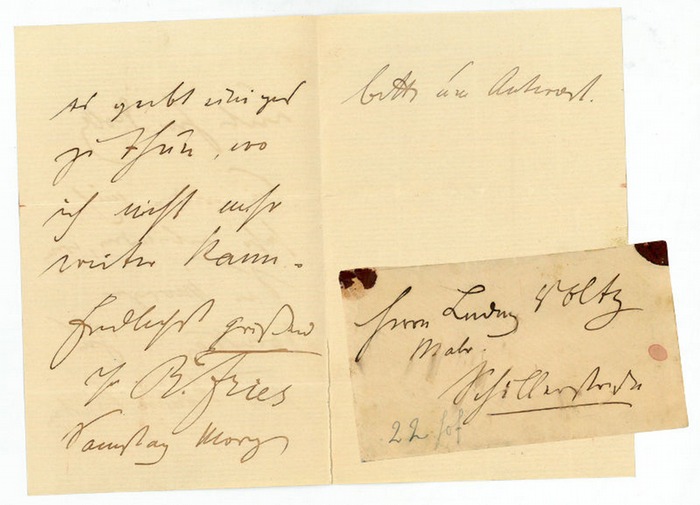 es giebt einiges
zu thun, wo
ich nicht mehr
weiter kann.
freundlichst grüßend
B. Fries
Samstag Morg
bitte um Antwort.
Herrn Ludwig Voltz
Maler
Schillerstraße
22 Hof